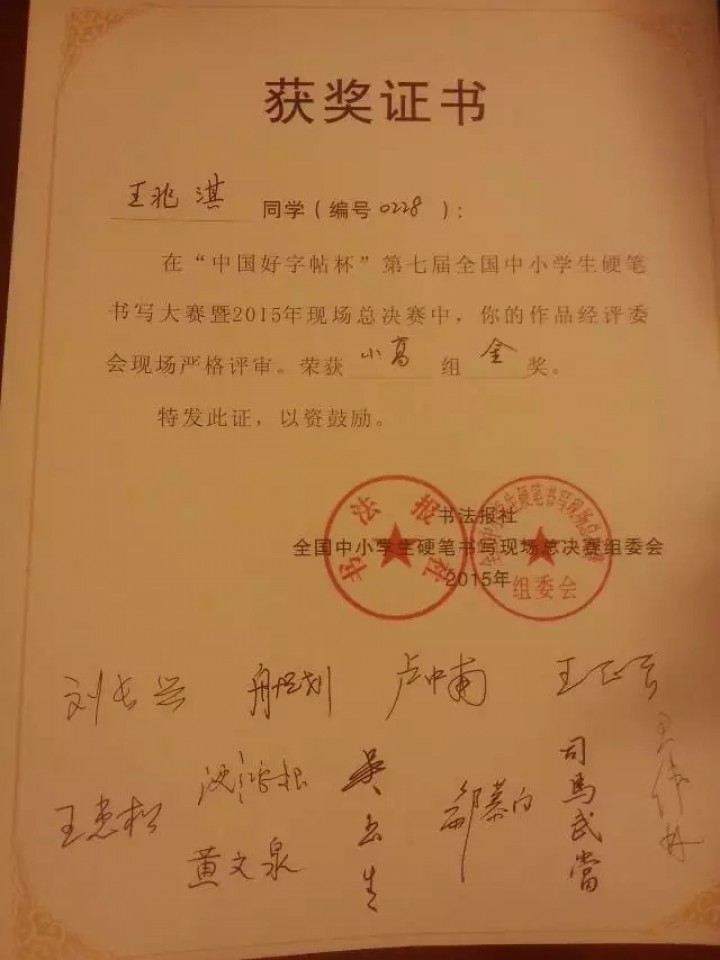 获奖证书
王兆淇 同学（编号0228）：
在“中国好字帖杯”第七届全国中小学生硬笔
书写大赛暨2015年现场总决赛中，你的作品经评委
会现场严格评审。荣获 小高 组 金 奖。
特发此证，以资鼓励。
书法报社
全国中小学生硬笔书写现场总决赛组委会
2015年
书法报社
组委会
刘长兴 卢中南 王正良
王惠松 沈鸿根 吴玉生 邹慕白 司馬武當
黄文泉